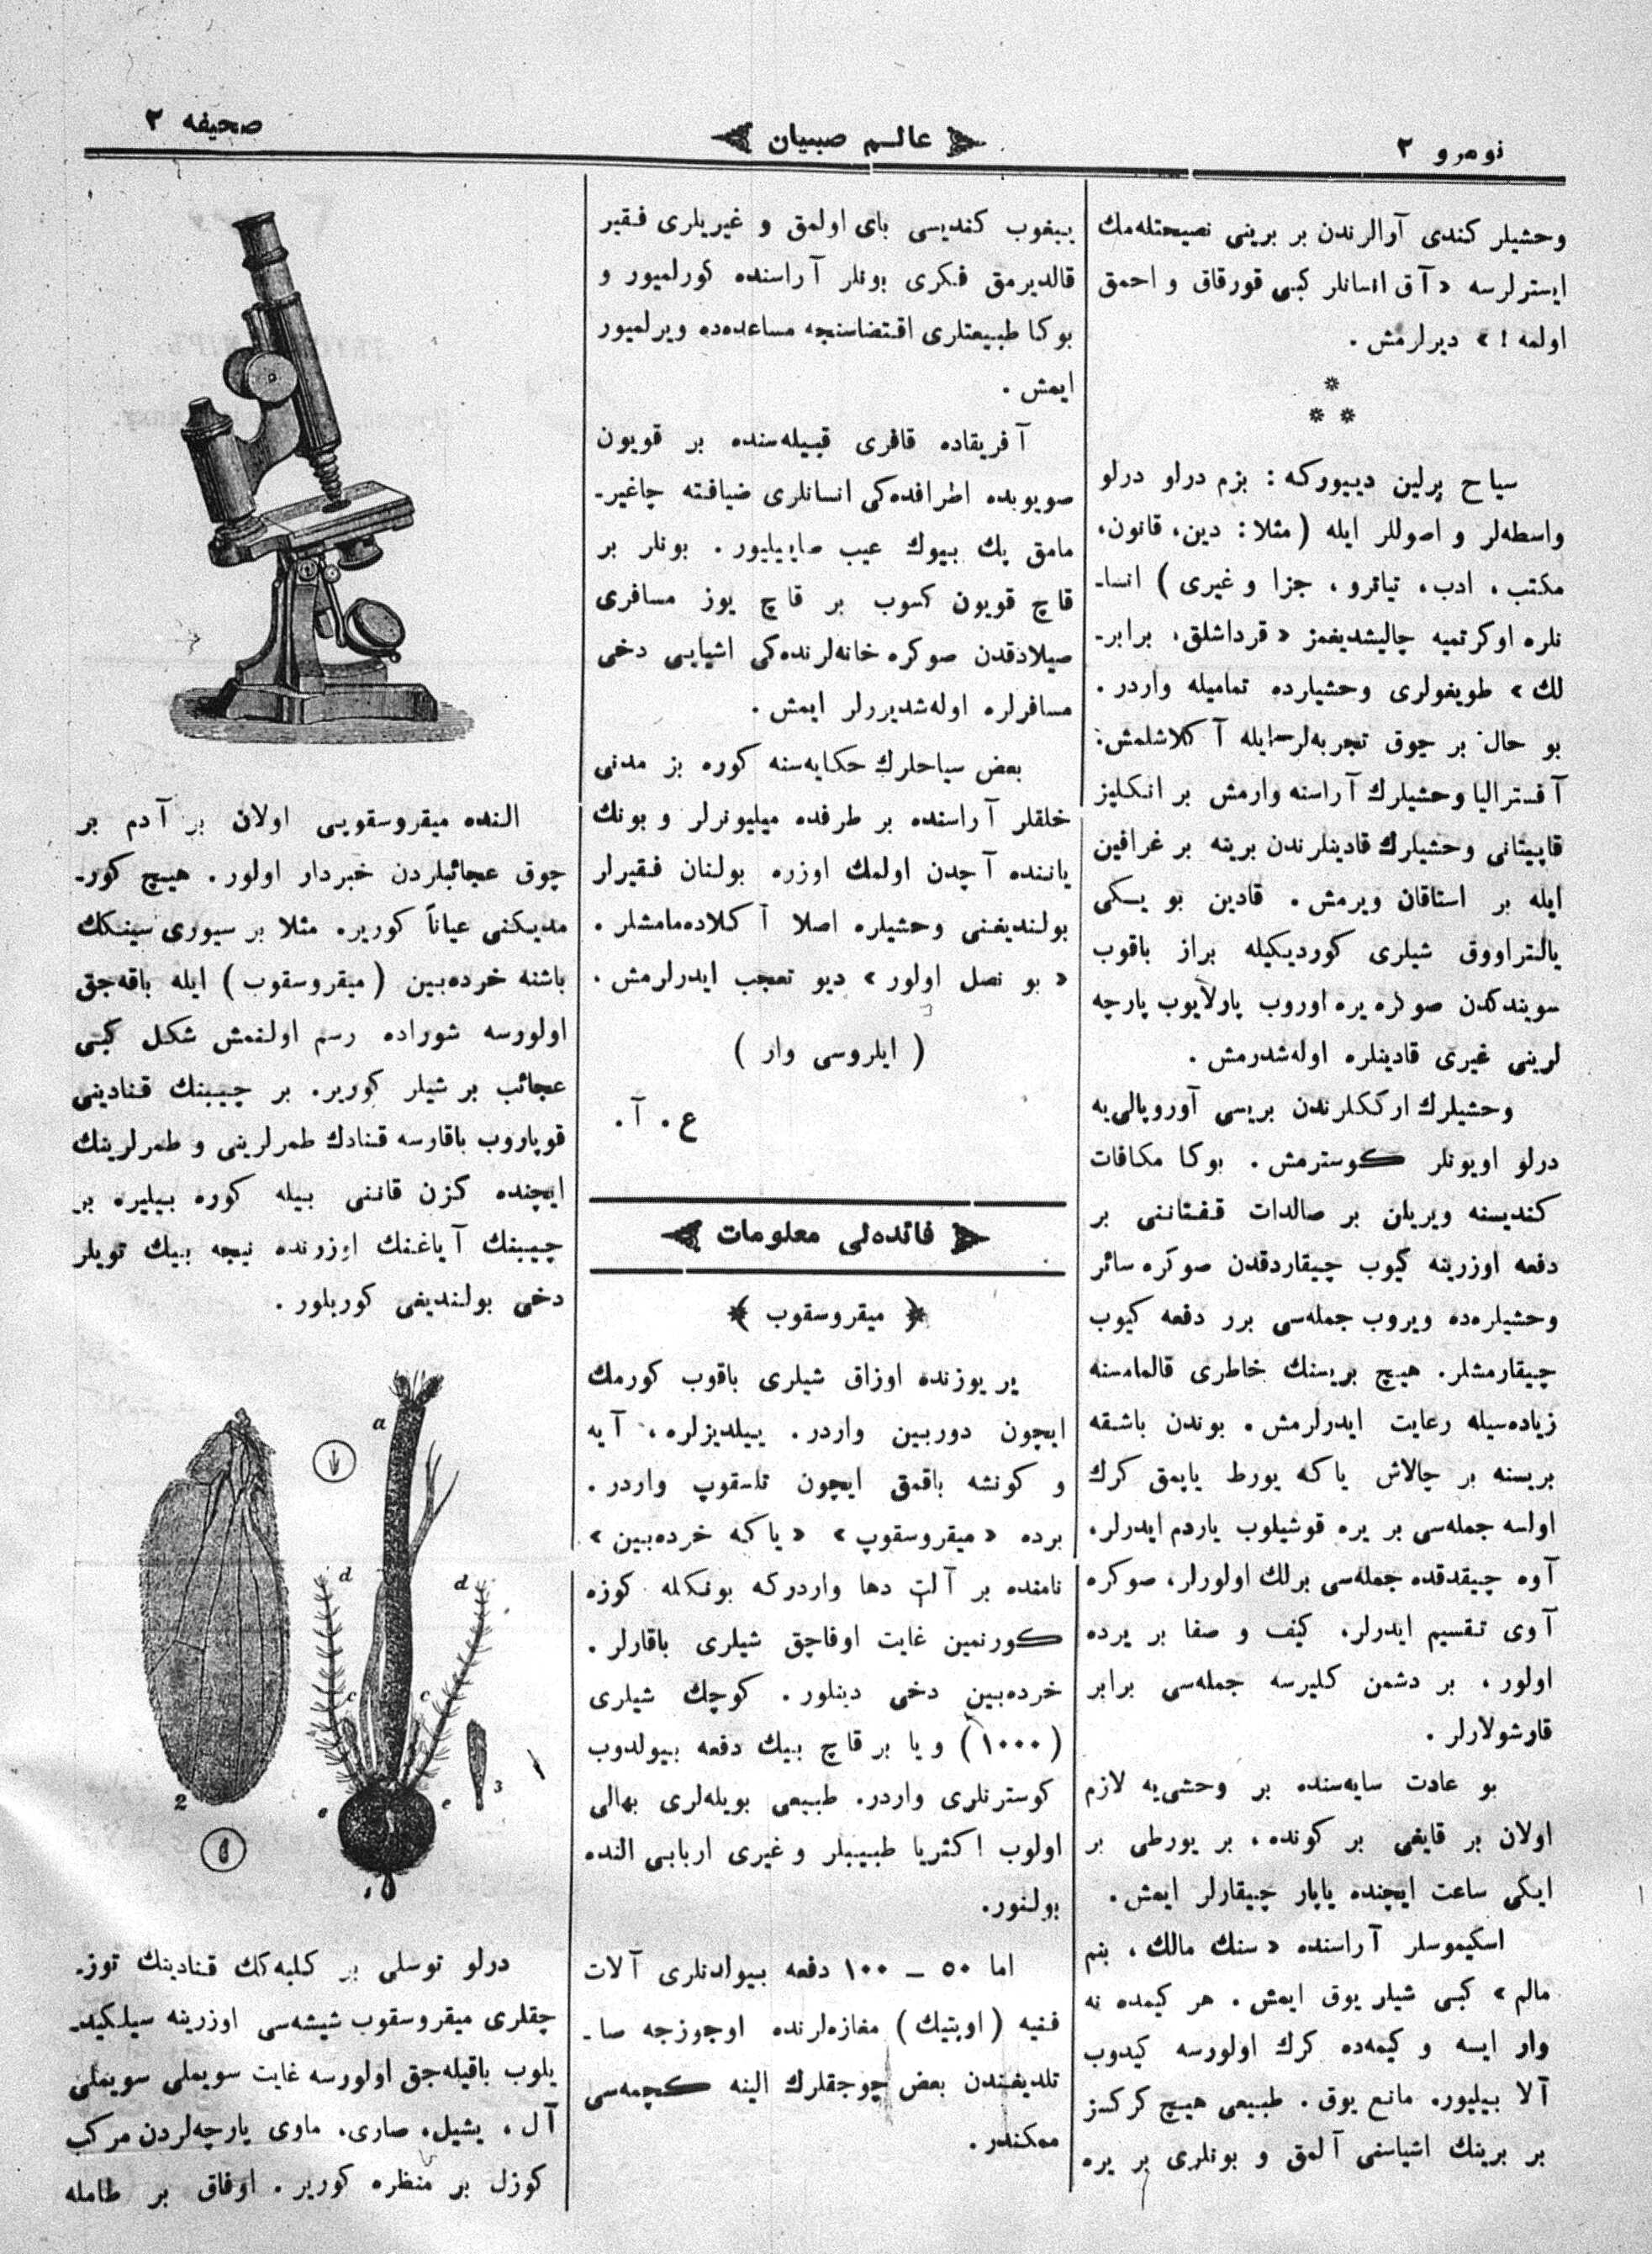 نومرو ۲
عالم صبیان
صحیفه ۲
وحشیلر کندی آرالرندن بر برینی نصیحتله‌مك
ایسترلرسه «آق انسانلر کبی قورقاق و احمق
اولمه!» دیرلرمش.
سیاح پرلین دیییورکه: بزم درلو درلو
واسطه‌لر و اصوللر ایله (مثلا: دین، قانون،
مکتب، ادب، تیاترو، جزا و غیری) انسا-
نلره اوکرتمیه چالیشدیغمز «قرداشلق، برابر-
لك» طویغولری وحشیلرده تمامیله واردر.
بو حال بر چوق تجربه‌لر ایله آکلاشلمش:
آفسترالیا وحشیلرك آراسنه وارمش بر انکلیز
قاپیتانی وحشیلرك قادینلرندن برینه بر غرافین
ایله بر استاقان ویرمش. قادین بو یسکی
یالتراووق شیلری کوردیکیله براز باقوب
سویندکدن صوکره یره اوروب پارلایوب پارچه
لرینی غیری قادینلره اوله‌شدرمش.
وحشیلرك ارککلرندن بریسی آوروپالی‌یه
درلو اویونلر کوسترمش. بوکا مکافات
کندیسنه ویریلن بر صالدات قفتاننی بر
دفعه اوزرینه کیوب چیقاردقدن صوکره سائر
وحشیلره‌ده ویروب جمله‌سی برر دفعه کیوب
چیقارمشلر. هیچ بریسنك خاطری قالمامسنه
زیاده‌سیله رعایت ایدرلرمش. بوندن باشقه
بریسنه بر چالاش یاکه یورط یاپمق کرك
اولسه جمله‌سی بر یره قوشیلوب یاردم ایدرلر،
آوه چیقدقده جمله‌سی برلك اولورلر، صوکره
آوی تقسیم ایدرلر، کیف و صفا بر یرده
اولور، بر دشمن کلیرسه جمله‌سی برابر
قارشولارلر.
بو عادت سایه‌سنده بر وحشی‌یه لازم
اولان بر قایغی بر کونده، بر یورطی بر
ایکی ساعت ایچنده یاپار چیقارلر ایمش.
اسکیموسلر آراسنده «سنك مالك، بنم
مالم» کبی شیلر یوق ایمش. هر کیمده نه
وار ایسه و کیمه‌ده کرك اولورسه کیدوب
آلا بیلیور. مانع یوق. طبیعی هیچ کرکسز
بر برینك اشیاسنی آلمق و بونلری بر یره
ییغوب کندیسی بای اولمق و غیریلری فقیر
قالدیرمق فکری بونلر آراسنده کورلمیور و
بوکا طبیعتلری اقتضاسنچه مساعده‌ده ویرلمیور
ایمش.
آفریقاده قافری قبیله‌سنده بر قویون
صویوبده اطرافده‌کی انسانلری ضیافته چاغیر-
مامق پك بیوك عیب صاییلیور. بونلر بر
قاچ قویون کسوب بر قاچ یوز مسافری
صیلادقدن صوکره خانه‌لرنده‌کی اشیایی دخی
مسافرلره اوله‌شدیررلر ایمش.
بعض سیاحلرك حکایه‌سنه کوره بز مدنی
خلقلر آراسنده بر طرفده میلیونرلر و بونك
یاننده آچدن اولمك اوزره بولنان فقیرلر
بولندیغنی وحشیلره اصلا آکلاده‌مامشلر.
«بو نصل اولور» دیو تعجب ایدرلرمش.
(ایلروسی وار)
ع. آ.
فائده‌لی معلومات
میقروسقوب
یر یوزنده اوزاق شیلری باقوب کورمك
ایچون دوربین واردر. ییلدیزلره، آیه
و کونشه باقمق ایچون تلسقوپ واردر.
برده «میقروسقوپ» «یاکه خرده‌بین»
نامنده بر آلت دها واردرکه بونکله کوزه
کورنمین غایت اوفاچق شیلری باقارلر.
خرده‌بین دخی دینلور. کوچك شیلری
(۱۰۰۰) و یا بر قاچ بیك دفعه بیولدوب
کوسترنلری واردر. طبیعی بویله‌لری بهالی
اولوب اکثریا طبیبلر و غیری اربابی النده
بولنور.
اما ۵۰ – ۱۰۰ دفعه بیولدنلری آلات
فنیه (اوپتیك) مغازه‌لرنده اوجوزجه صا-
تلدیغندن بعض چوجقلرك الینه کچمه‌سی
ممکندر.
النده میقروسقوبی اولان بر آدم بر
چوق عجائبلردن خبردار اولور. هیچ کور-
مدیکنی عیاناً کوریر. مثلا بر سیوری سینکك
باشنه خرده‌بین (میقروسقوب) ایله باقه‌جق
اولورسه شوراده رسم اولنمش شکل کبی
عجائب بر شیلر کوریر. بر چیبنك قنادینی
قوپاروب باقارسه قنادك طمرلرینی و طمرلرینك
ایچنده کزن قاننی بیله کوره بیلیره بر
چیبنك آیاغنك اوزرنده نیچه بیك تویلر
دخی بولندیغی کوریلور.
a
d
d
c
c
e
e
2
3
1
درلو توسلی بر کلبه‌كك قنادینك توز-
چقلری میقروسقوب شیشه‌سی اوزرینه سیلکید-
یلوب باقیله‌جق اولورسه غایت سویملی سویملی
آل، یشیل، صاری، ماوی پارچه‌لردن مرکب
کوزل بر منظره کوریر. اوفاق بر طامله